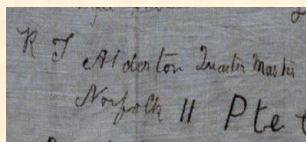 R J Alderton Quarter Master
Norfolk 11 Pte